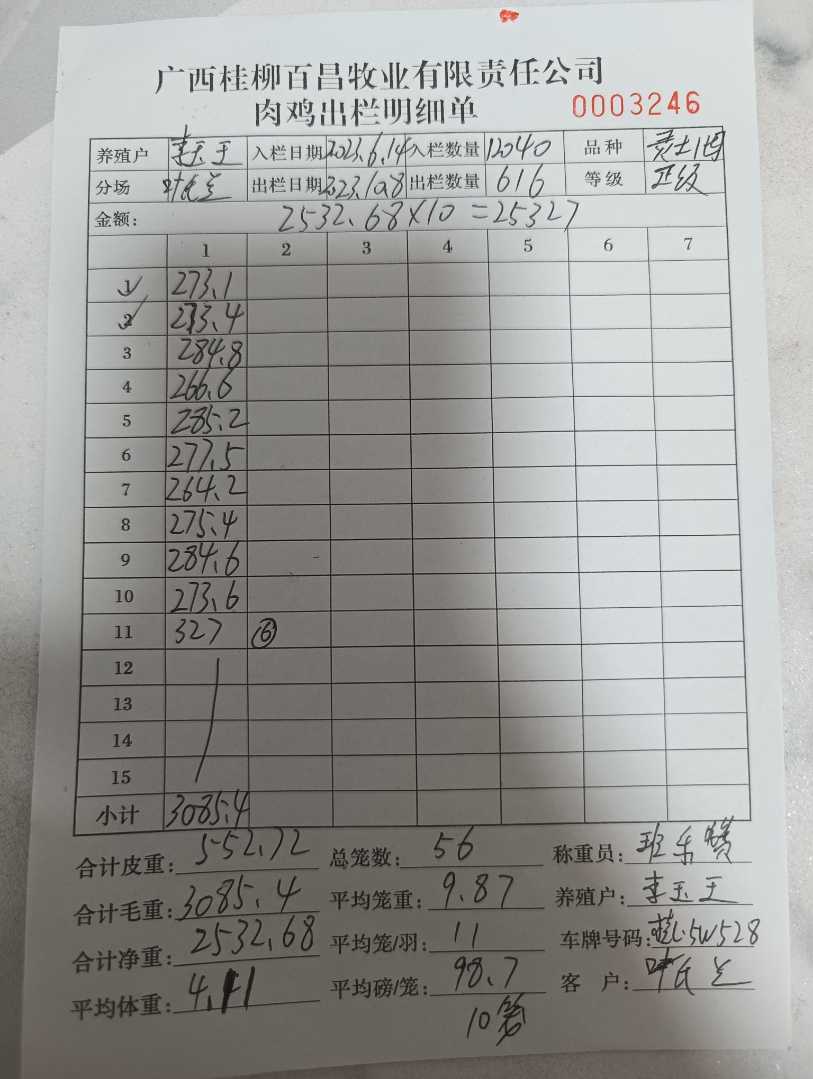 广西桂柳百昌牧业有限责任公司
肉鸡出栏明细单 0003246
养殖户 李玉王 入栏日期 2023.6.14 入栏数量 12040 品种
分场 叶氏兰 出栏日期 2023.10.8 出栏数量 616 等级 正级
金额: 2532.68×10=25327
1 2 3 4 5 6 7
1 273.1
2 273.4
3 284.8
4 266.6
5 285.2
6 277.5
7 264.2
8 275.4
9 284.6
10 273.6
11 327 ⑥
12
13
14
15
小计 3085.4
合计皮重: 552.72 总笼数: 56 称重员: 班
合计毛重: 3085.4 平均笼重: 9.87 养殖户: 李玉王
合计净重: 2532.68 平均笼/羽: 11 车牌号码: 桂L5W528
平均体重: 4.11 平均磅/笼: 98.7 客户: 叶氏兰
10